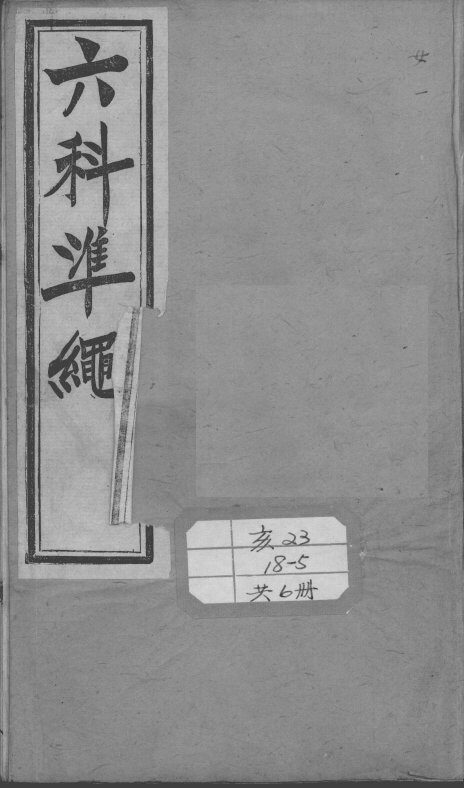 六科準繩
亥23
18-5
共6册